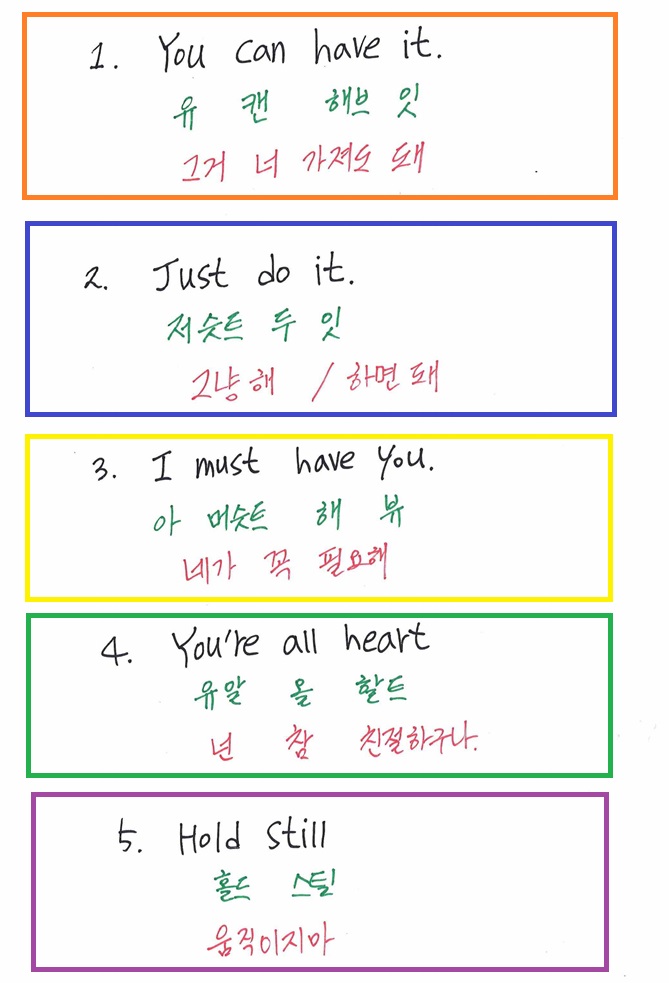 1. You can have it.
유 캔 해브 잇
그거 너 가져도 돼
2. Just do it.
저슷트 두 잇
그냥 해 / 하면 돼
3. I must have you.
아 머슷트 해 뷰
네가 꼭 필요해
4. You're all heart
유알 올 할트
넌 참 친절하구나.
5. Hold still
홀드 스틸
움직이지마